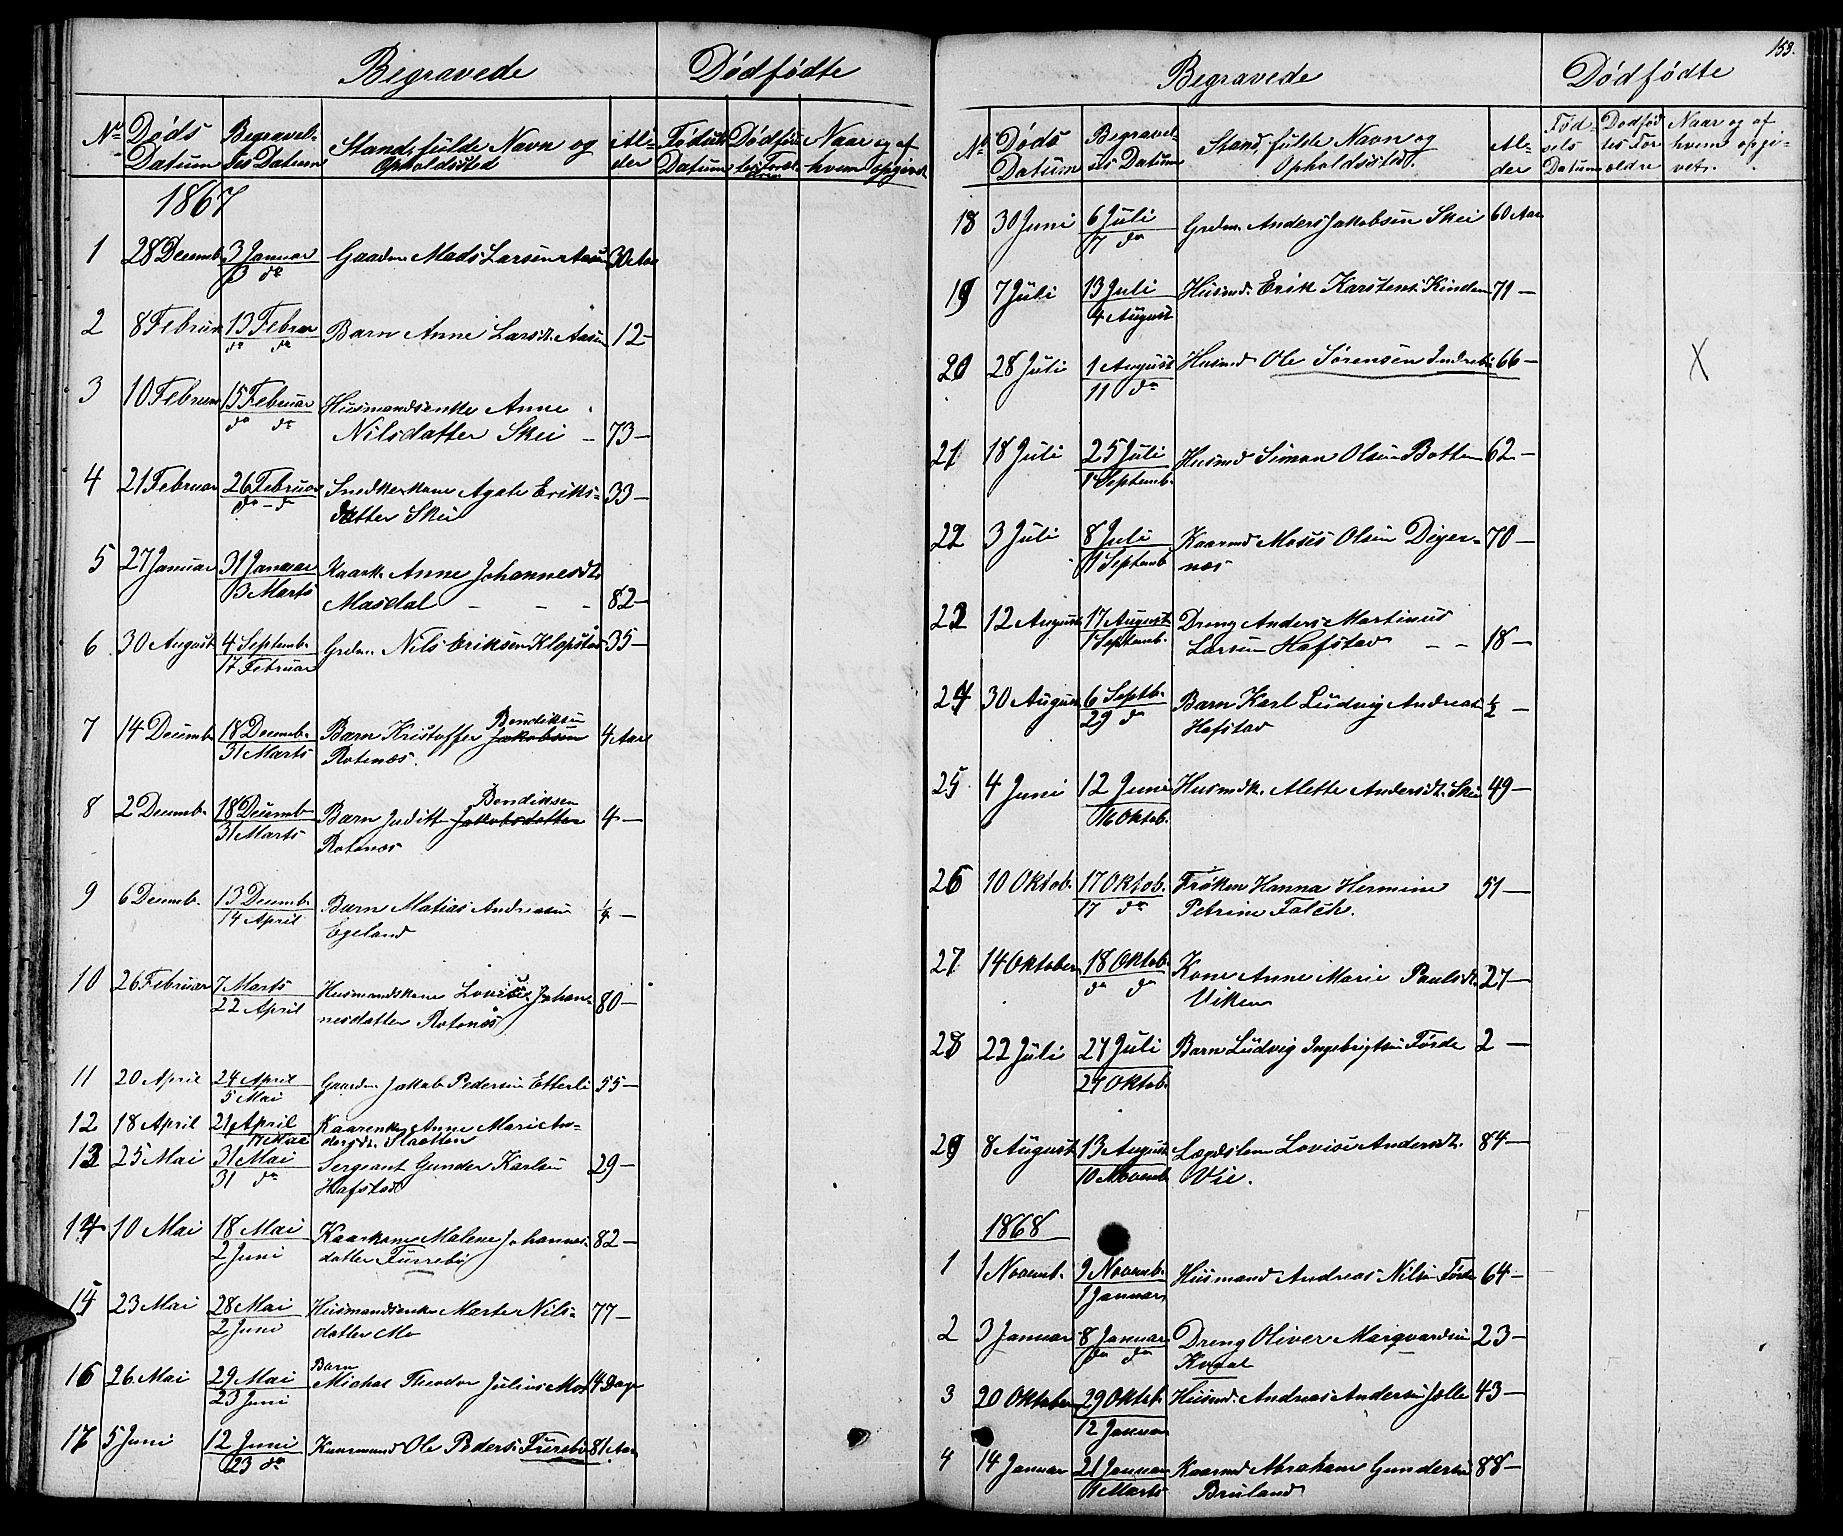 Begravede Dødfødte
No Døds Datum Begravel- ses Datum Stand, fulde Navn og Opholdssted Al- der Fødsels Datum Dødfød- tes Foræl- dre Naar og af hvem opgivet
1867
1 28 Decemb. 3 Januar Gaardm. Mads Larsen Aasen 30 Aar
3 do
2 8 Februar 13 Februar Barn Anne Larsdt. Aasen 12 —
do do
3 10 Februar 15 Februar Husmandsenke Anne
do do Nilsdatter Skei — 73 —
4 21 Februar 26 Februar Snedkerkone Agate Eriks- 33 —
do — do datter Skei
5 27 Januar 31 Januar Kaark. Anne Johannesdt.
3 Marts Masdal — — — 82 —
6 30 August 4 Septemb. Grdm. Nils Eriksen Klopstad 35 —
17 Februar
7 14 Decemb. 18 Decemb. Barn Kristoffer Jakobsen Bendiksen 4 Aar
31 Marts Rotenæs.
8 2 Decemb. 18 Decemb. Barn Juditt Jakobsdatter Bendiksen 4 —
31 Marts Rotenæs
9 6 Decemb. 13 Decemb. Barn Matias Andreasen 1/4 —
14 April Egeland
10 26 Februar 7 Marts Husmandskone Lovise Johan- 80 —
22 April nesdatter Rotenæs
11 20 April 24 April Gaardm. Jakob Pedersen Etterli 55 —
5 Mai
12 18 April 21 April Kaarenke Anne Marie An-
Mai dersdt. Slaatten
13 25 Mai 31 Mai Sergeant Gunder Karlsen 29 —
31 do Hafstad
14 10 Mai 18 Mai Kaarkone Malene Johannes- 82 —
2 Juni datter Furrebø
15 23 Mai 28 Mai Husmandsenke Marte Nils- 77 —
2 Juni datter Mo
16 26 Mai 29 Mai Barn Michal Theodor Julius Mo 14 Dage
23 Juni
17 5 Juni 12 Juni Kaarmand Ole Peders. Furebø 81 Aar
23 do
153.
Begravede Dødfødte
No Døds Datum Begravel- ses Datum Stand, fulde Navn og Opholdssted Al- der Fød- sels Datum Dødfød- tes For- ældre Naar og af hvem opgi- vet.
18 30 Juni 6 Juli Grdm. Anders Jakobsen Skei 60 Aar
7 do
19 7 Juli 13 Juli Husmd. Erik Karstens. Kinden 71 —
4 August
20 28 Juli 1 August Husmd Ole Sørensen Indrebø 66 — X
11 do
21 18 Juli 25 Juli Husmd Simon Olsen Botten 62 —
1 Septemb.
22 3 Juli 8 Juli Kaarmd Moses Olsen Diger- 70 —
1 Septemb. næs
23 12 August 17 August Dreng Anders Martinus
1 Septemb. Larsen Hafstad — — 18 —
24 30 August 6 Septb. Barn Karl Ludvig Andreas 1/2 —
29 do Hafstad
25 4 Juni 12 Juni Husmdk. Alette Andersdt. Skei 49 —
16 Oktob.
26 10 Oktob. 17 Oktob. Frøken Hanna Hermine 51 —
17 do Petrine Falch.
27 14 Oktober 18 Oktob. Kone Anne Marie Paulsdt. 27 —
do do Viken
28 22 Juli 27 Juli Barn Ludvig Ingebrigtsen Førde 2 —
27 Oktob.
29 8 August 13 August Lægdslem Lovise Andersdt. 84 —
10 Novemb. Vie.
1868
1 1 Novemb. 9 Novemb. Husmand Andreas Nilsen Førde 64 —
1 Januar
2 3 Januar 8 Januar Dreng Oliver Marqvardsen 23 —
do do Kvaal
3 20 Oktober 29 Oktob. Husmd. Andreas Andersen Jølle 43 —
12 Januar
4 14 Januar 21 Januar Kaarmd Abraham Gundersen 88 —
1 Marts Bruland